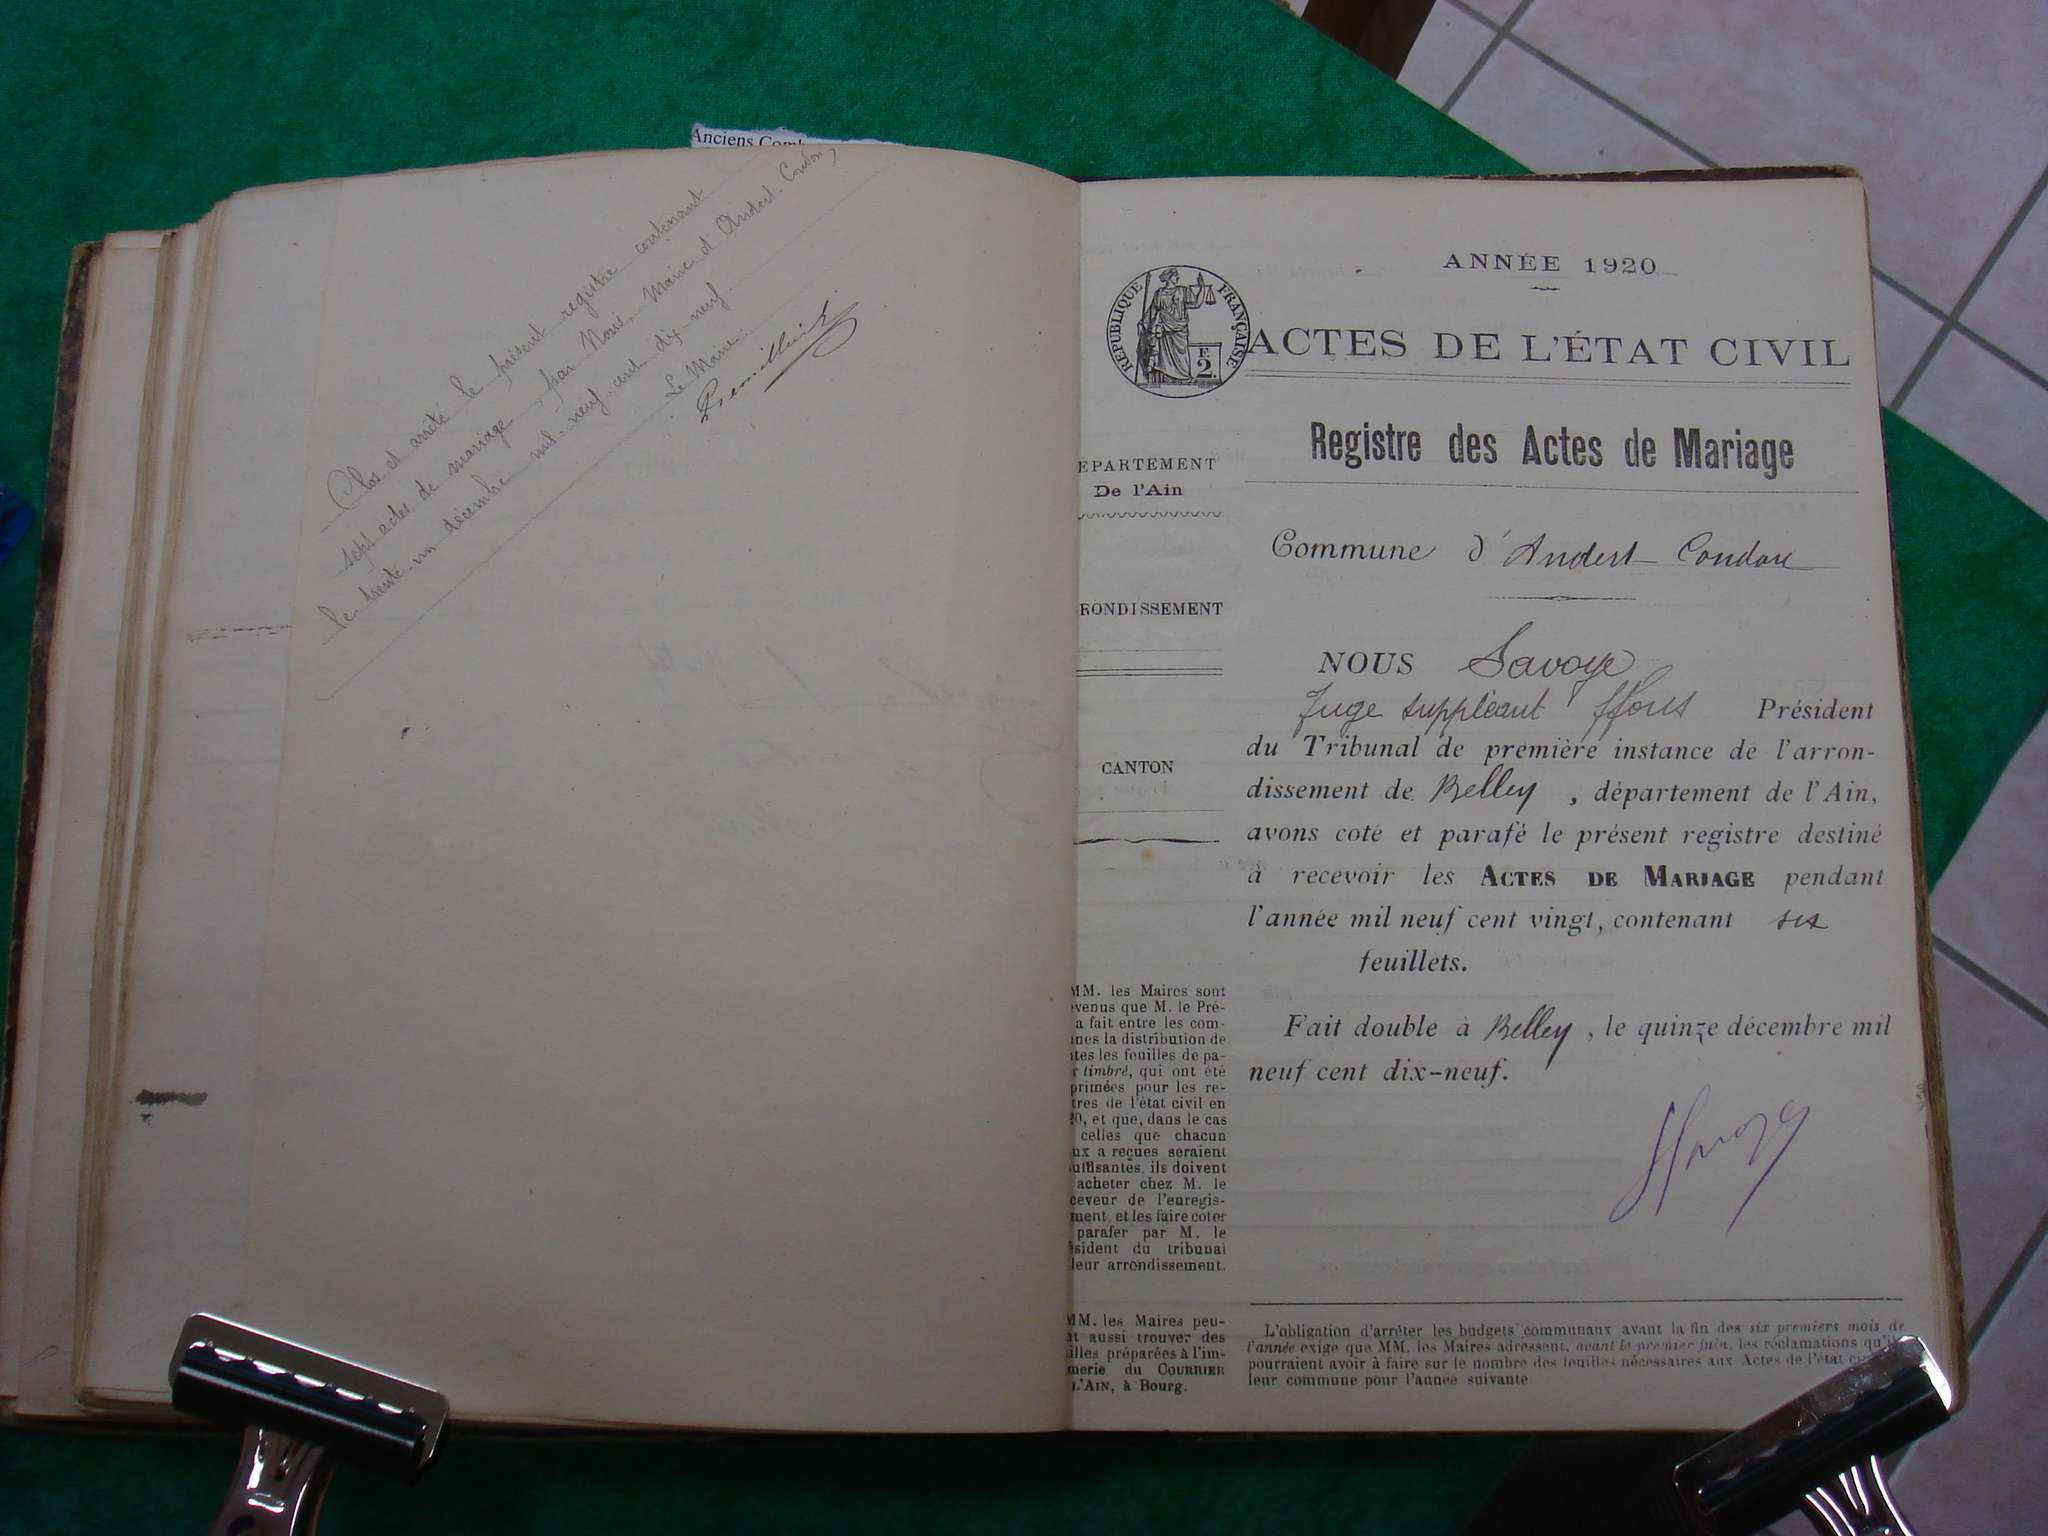 Anciens Comb
Clos et arrêté le présent registre contenant
sept actes de mariage, par Nous, Maire d'Andert-Condon,
le trente-un décembre mil-neuf-cent dix-neuf.
Le Maire
ANNÉE 1920
RÉPUBLIQUE FRANÇAISE
F.
2.
ACTES DE L'ÉTAT CIVIL
Registre des Actes de Mariage
ÉPARTEMENT
De l'Ain
RONDISSEMENT
CANTON
MM. les Maires sont
venus que M. le Pré-
a fait entre les com-
nes la distribution de
tes les feuilles de pa-
r timbré, qui ont été
primées pour les re-
tres de l'état civil en
20, et que, dans le cas
celles que chacun
ux a reçues seraient
uffisantes, ils doivent
acheter chez M. le
ceveur de l'enregis-
ment, et les faire coter
parafer par M. le
ésident du tribunal
leur arrondissement.
MM. les Maires peu-
nt aussi trouver des
illes préparées à l'im-
merie du COURRIER
L'AIN, à Bourg.
Commune d'Andert-Condon
NOUS Savoye
Juge suppléant ffons Président
du Tribunal de première instance de l'arron-
dissement de Belley, département de l'Ain,
avons coté et parafé le présent registre destiné
à recevoir les ACTES DE MARIAGE pendant
l'année mil neuf cent vingt, contenant six
feuillets.
Fait double à Belley, le quinze décembre mil
neuf cent dix-neuf.
Savoye
L'obligation d'arrêter les budgets communaux avant la fin des six premiers mois de
l'année exige que MM. les Maires adressent, avant le premier juin, les réclamations qu'il
pourraient avoir à faire sur le nombre des feuilles nécessaires aux Actes de l'état ci
leur commune pour l'année suivante